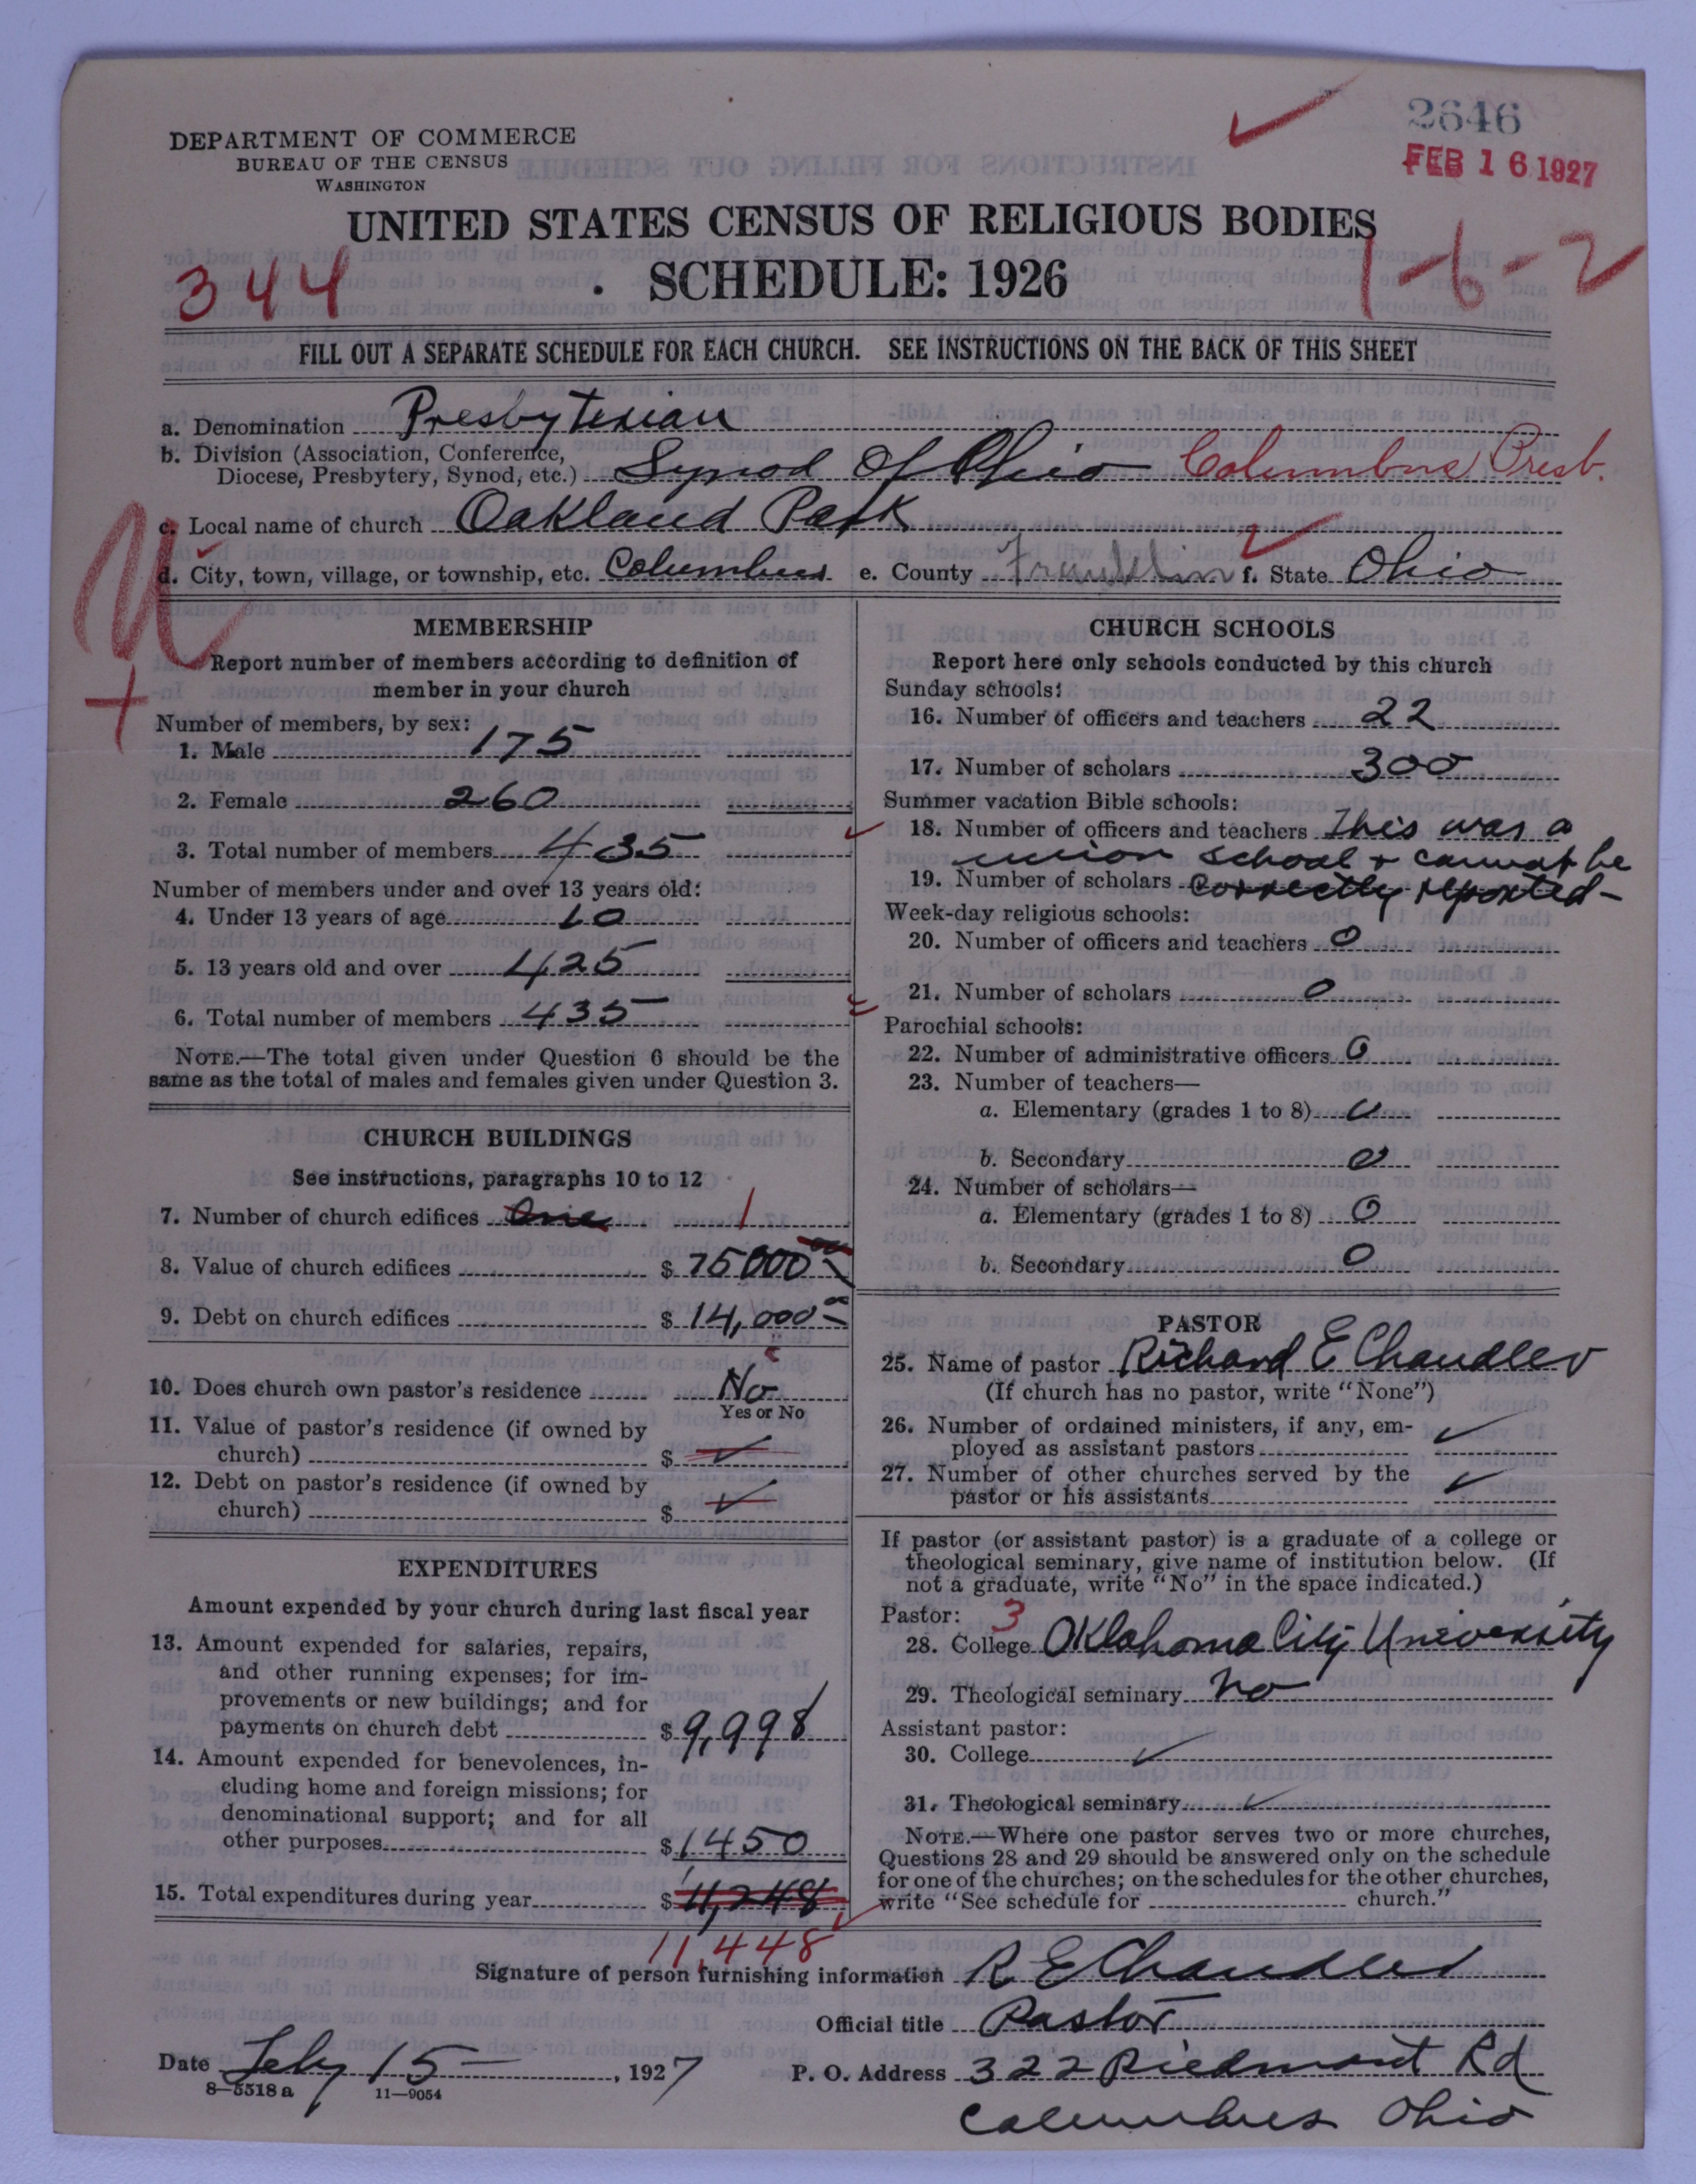 2646
FEB 16 1927
DEPARTMENT OF COMMERCE
BUREAU OF THE CENSUS
WASHINGTON
UNITED STATES CENSUS OF RELIGIOUS BODIES
SCHEDULE: 1926
344
1-6-2
FILL OUT A SEPARATE SCHEDULE FOR EACH CHURCH. SEE INSTRUCTIONS ON THE BACK OF THIS SHEET
a. Denomination Presbyterian
b. Division (Association, Conference,
Diocese, Presbytery, Synod, etc.) Synod of Ohio Columbus Presb.
c. Local name of church Oakland Park
d. City, town, village, or township, etc. Columbus e. County Franklin f. State Ohio
MEMBERSHIP
Report number of members according to definition of
member in your church
Number of members, by sex:
1. Male 175
2. Female 260
3. Total number of members 435
Number of members under and over 13 years old:
4. Under 13 years of age 10
5. 13 years old and over 425
6. Total number of members 435
NOTE.—The total given under Question 6 should be the
same as the total of males and females given under Question 3.
CHURCH BUILDINGS
See instructions, paragraphs 10 to 12
7. Number of church edifices One 1
8. Value of church edifices $ 75000 00
9. Debt on church edifices $ 14,000 00
10. Does church own pastor's residence No
Yes or No
11. Value of pastor's residence (if owned by
church) $
12. Debt on pastor's residence (if owned by
church) $
EXPENDITURES
Amount expended by your church during last fiscal year
13. Amount expended for salaries, repairs,
and other running expenses; for im-
provements or new buildings; and for
payments on church debt $ 9,998
14. Amount expended for benevolences, in-
cluding home and foreign missions; for
denominational support; and for all
other purposes $ 1450
15. Total expenditures during year $ 11,248
11,448
CHURCH SCHOOLS
Report here only schools conducted by this church
Sunday schools:
16. Number of officers and teachers 22
17. Number of scholars 300
Summer vacation Bible schools:
18. Number of officers and teachers This was a
union school + cannot be
19. Number of scholars correctly reported-
Week-day religious schools:
20. Number of officers and teachers 0
21. Number of scholars 0
Parochial schools:
22. Number of administrative officers 0
23. Number of teachers—
a. Elementary (grades 1 to 8) 0
b. Secondary 0
24. Number of scholars—
a. Elementary (grades 1 to 8) 0
b. Secondary 0
PASTOR
25. Name of pastor Richard E Chandler
(If church has no pastor, write "None")
26. Number of ordained ministers, if any, em-
ployed as assistant pastors
27. Number of other churches served by the
pastor or his assistants
If pastor (or assistant pastor) is a graduate of a college or
theological seminary, give name of institution below. (If
not a graduate, write "No" in the space indicated.)
Pastor: 3
28. College Oklahoma City University
29. Theological seminary No
Assistant pastor:
30. College
31. Theological seminary
NOTE.—Where one pastor serves two or more churches,
Questions 28 and 29 should be answered only on the schedule
for one of the churches; on the schedules for the other churches,
write "See schedule for church."
Signature of person furnishing information R. E Chandler
Official title Pastor
Date Feby 15 , 1927 P. O. Address 322 Piedmont Rd
8—5518 a 11—9054
Columbus Ohio